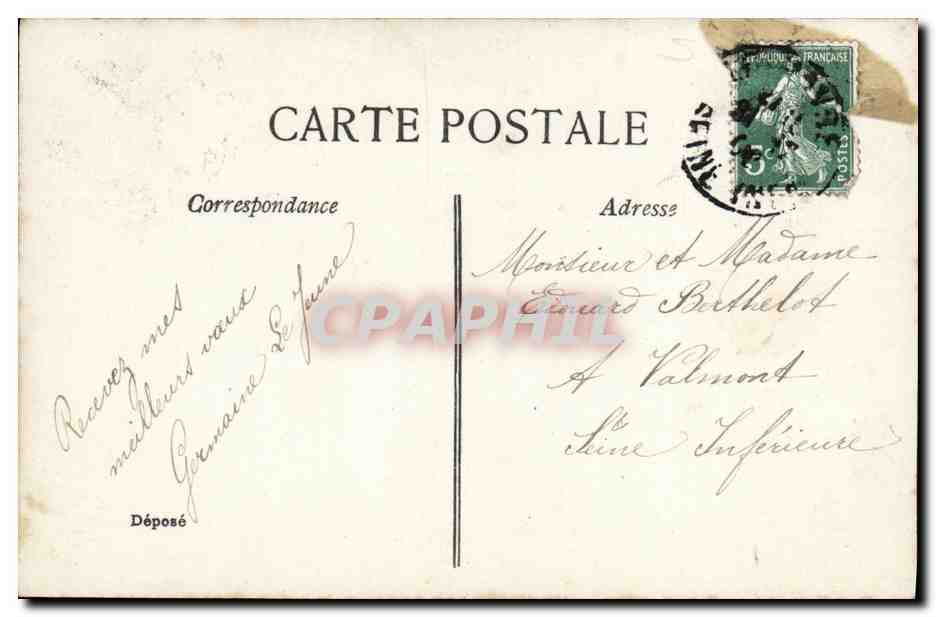 CARTE POSTALE
RÉPUBLIQUE FRANÇAISE
5c
POSTES
SEINE
Correspondance
Adresse
Recevez mes
meilleurs vœux
Germaine Le Jeune
Monsieur et Madame
Edouard Berthelot
A Valmont
Seine Inférieure
Déposé
CPAPHIL